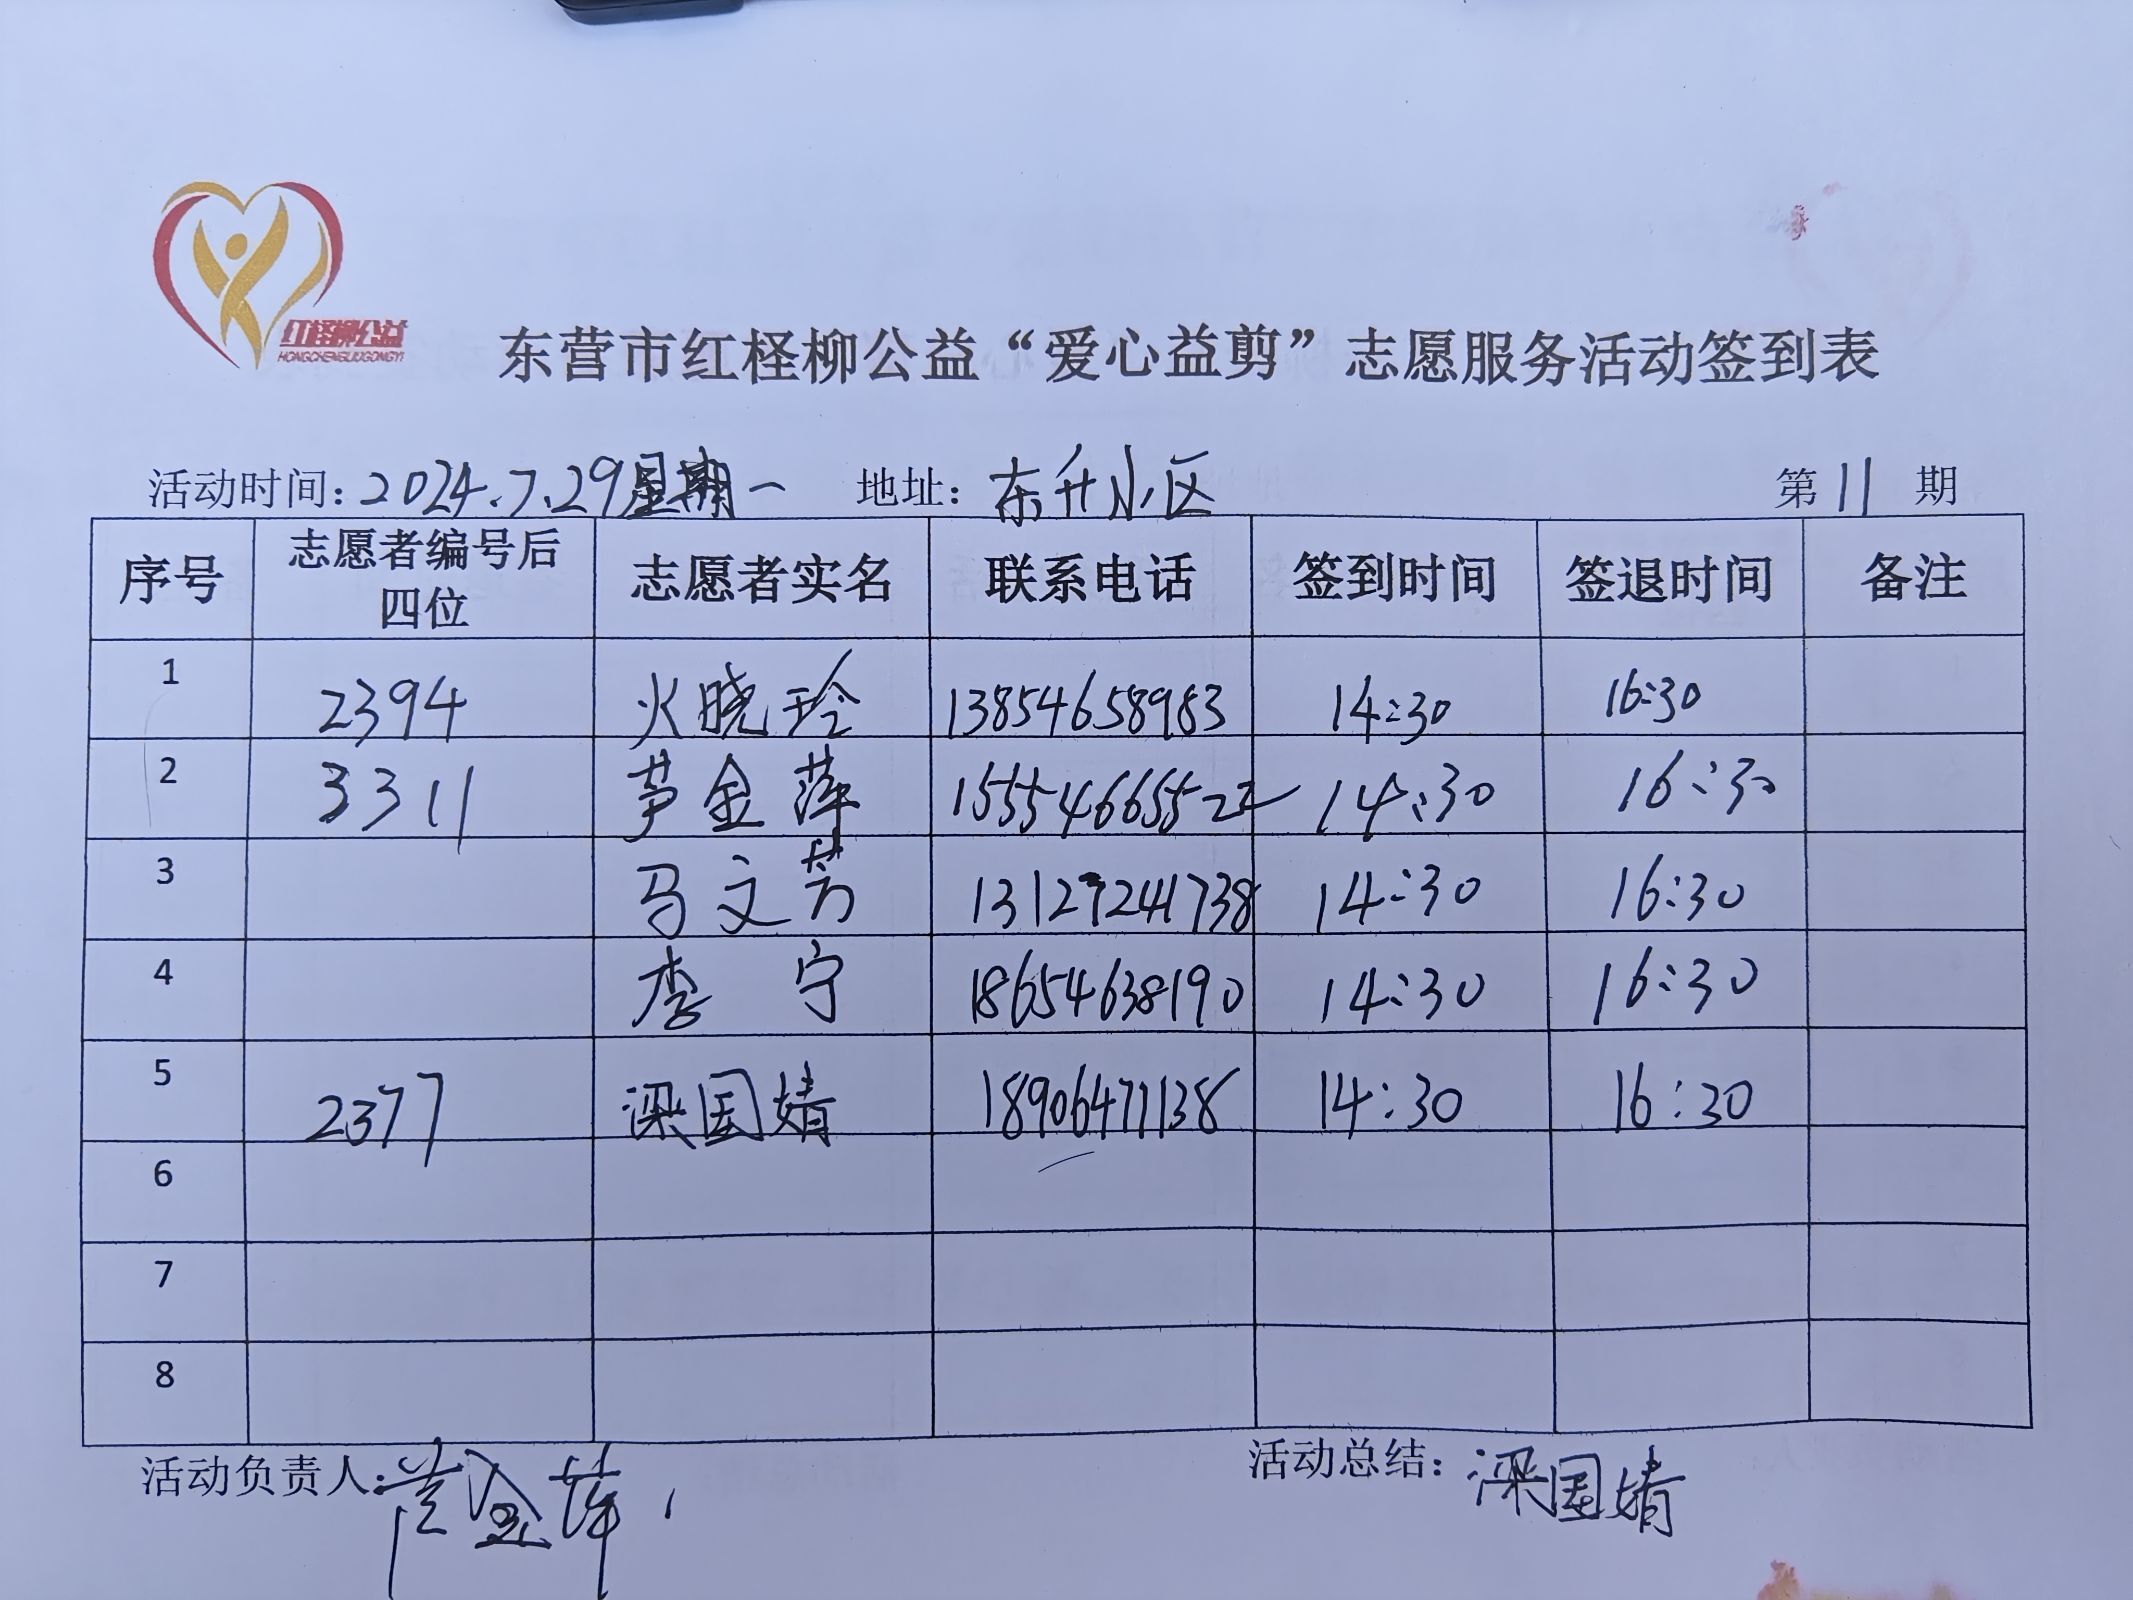 红柽柳公益
HONGCHENGLIUGONGYI
东营市红柽柳公益“爱心益剪”志愿服务活动签到表
活动时间：2024.7.29星期一 地址：东升小区 第11期
序号 志愿者编号后四位 志愿者实名 联系电话 签到时间 签退时间 备注
1 2394 火晓玲 13854658983 14:30 16:30
2 3311 芦金萍 15554665522 14:30 16:30
3 马文芳 13127241738 14:30 16:30
4 李宁 18654638190 14:30 16:30
5 2377 梁国婧 18906471138 14:30 16:30
6
7
8
活动负责人：芦金萍 活动总结：梁国婧